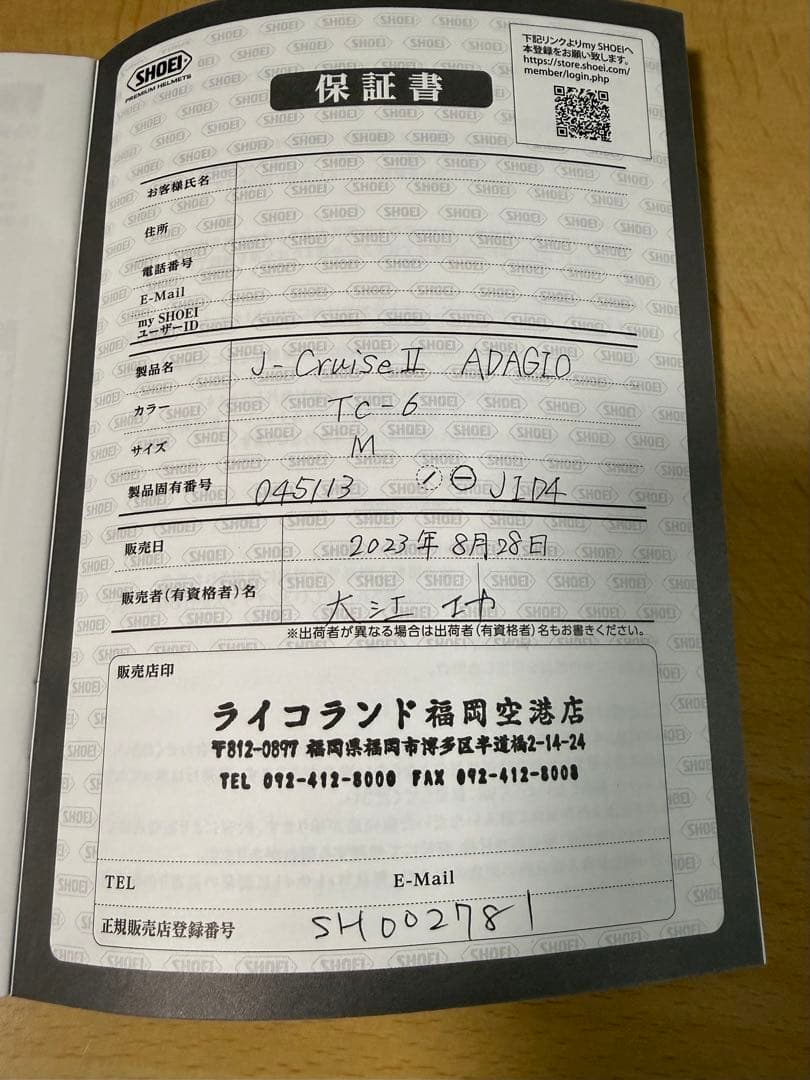 SHOEI
PREMIUM HELMETS
保証書
下記リンクよりmy SHOEIへ
本登録をお願い致します。
https://store.shoei.com/
member/login.php
お客様氏名
住所
電話番号
E-Mail
my SHOEI
ユーザーID
製品名 J-Cruise II ADAGIO
カラー TC-6
サイズ M
製品固有番号 045113 JID4
販売日 2023年8月28日
販売者(有資格者)名 大江
※出荷者が異なる場合は出荷者(有資格者)名もお書きください。
販売店印
ライコランド福岡空港店
〒812-0897 福岡県福岡市博多区半道橋2-14-24
TEL 092-412-8000 FAX 092-412-8008
TEL E-Mail
正規販売店登録番号 SH002781